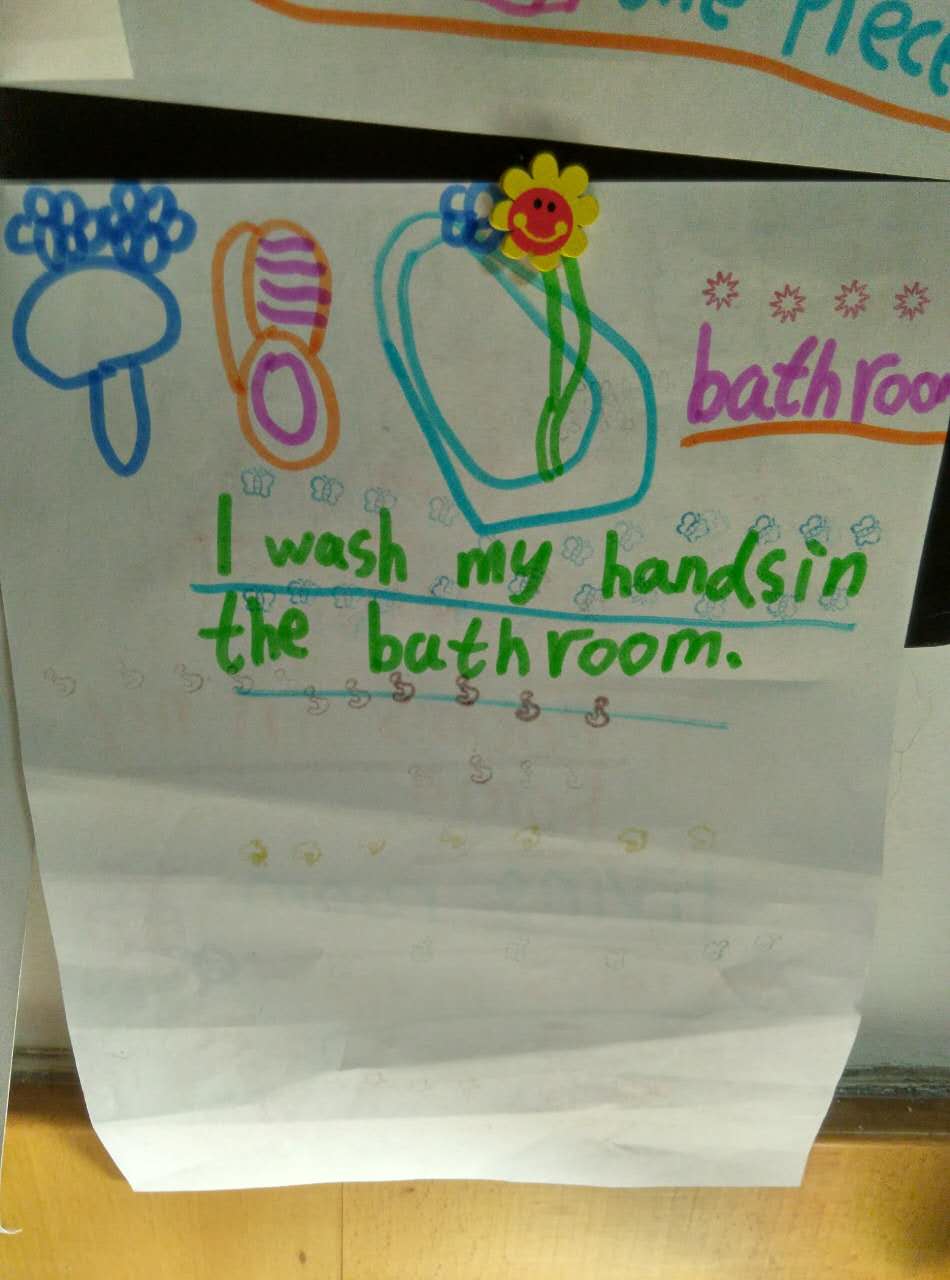 the piece
bathroo
I wash my handsin
the bathroom.